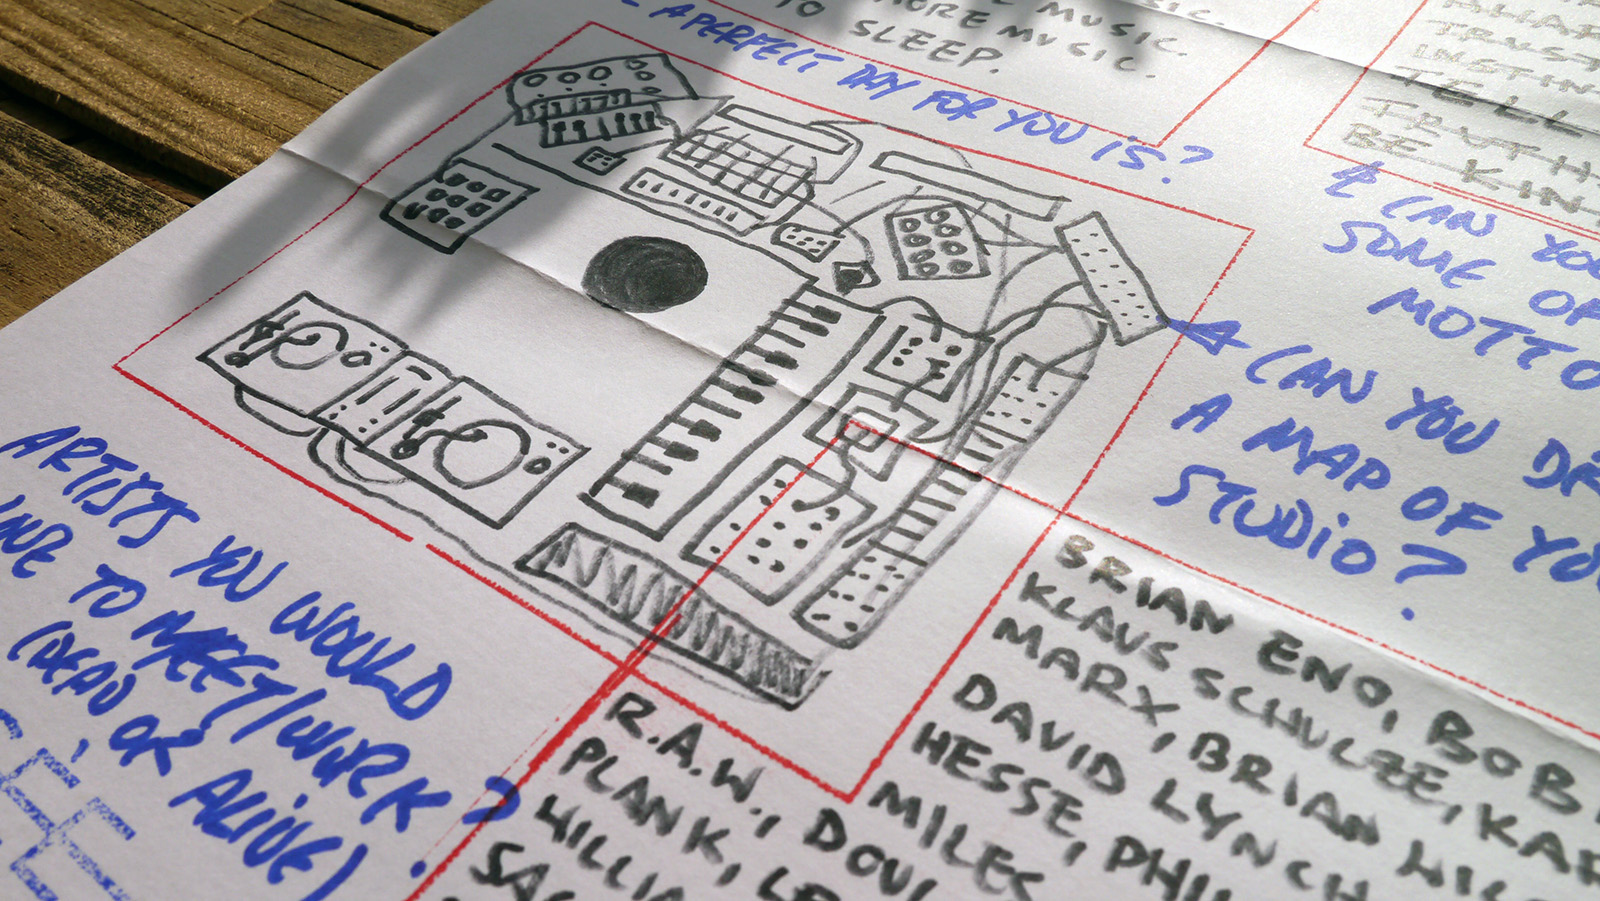 MORE MUSIC.
TO SLEEP.
MUSIC.
A PERFECT DAY FOR YOU IS?
TRUST
INSTIN
TELL
TRUTH
BE KIN
CAN YOU
SOME OF
MOTTO
CAN YOU DR
A MAP OF YO
STUDIO?
ARTISTS YOU WOULD
TO MEET/WORK
(DEAD OR ALIVE)?
BRIAN ENO, BOB
KLAUS SCHULZE, KAR
MARX, BRIAN WIL
DAVID LYNCH
HESSE, PHIL
MILES
R.A.W., DOU
PLANK, LE
WILLIA
SA